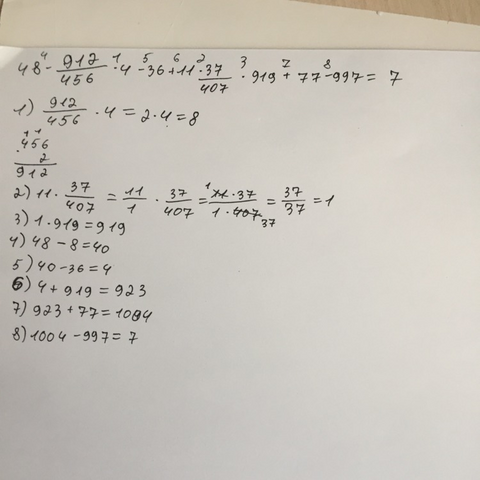 48 - 912/456 · 4 - 36 + 11 · 37/407 · 919 + 77 - 997 = 7
1) 912/456 · 4 = 2 · 4 = 8
456
2
912
2) 11 · 37/407 = 11/1 · 37/407 = 11 · 37/1 · 407 = 37/37 = 1
3) 1 · 919 = 919
4) 48 - 8 = 40
5) 40 - 36 = 4
6) 4 + 919 = 923
7) 923 + 77 = 1004
8) 1004 - 997 = 7